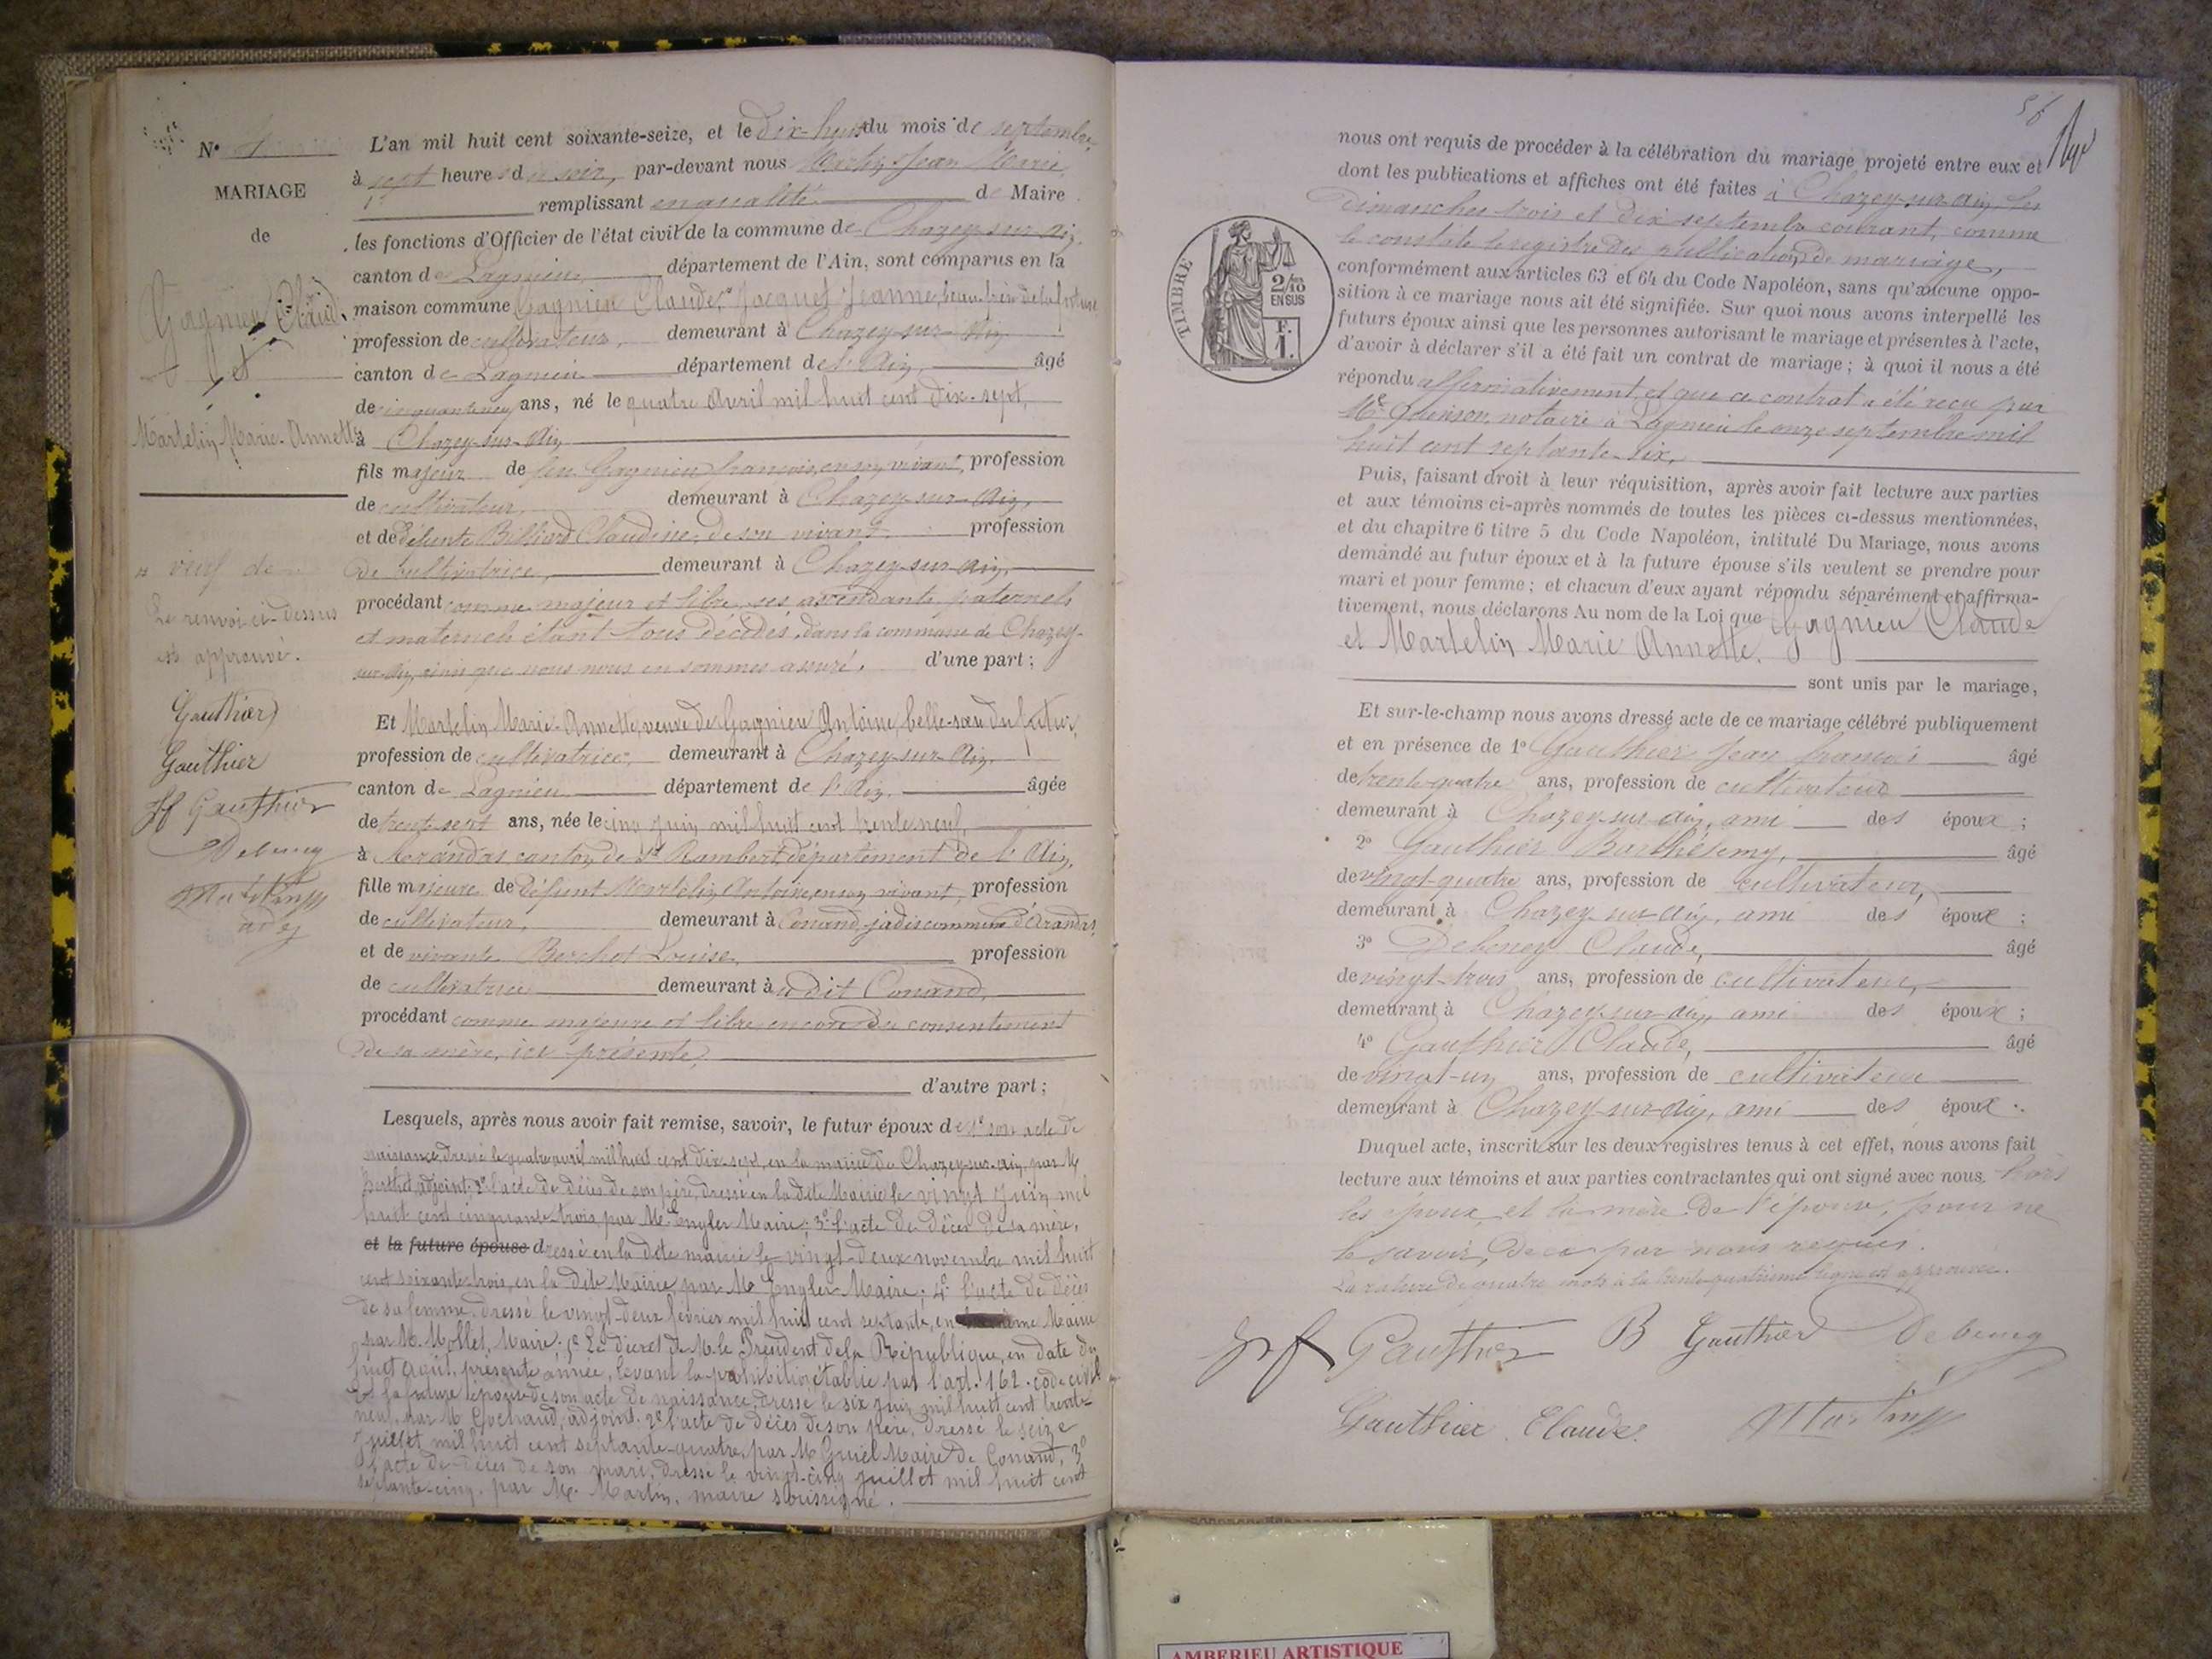 N° 
MARIAGE
de
Gagnieu Claude
et
Martelin Marie-Annette
" veuf de
Le renvoi ci-dessus
est approuvé.
Gauthier
Gauthier
Jf Gauthier
L'an mil huit cent soixante-seize, et le dix-huit du mois de septembre
à sept heures du soir, par-devant nous Martin Jean Marie
remplissant en qualité de Maire
les fonctions d'Officier de l'état civil de la commune de Chazey-sur-Ain,
canton de Lagnieu, département de l'Ain, sont comparus en la
maison commune Gagnieu Claude, " Jacquet Jeanne, beau-frère de la future
profession de cultivateur, demeurant à Chazey-sur-Ain
canton de Lagnieu département de l'Ain, âgé
de cinquante-neuf ans, né le quatre Avril mil huit cent dix-sept,
à Chazey-sur-Ain
fils majeur de feu Gagnieu françois, en son vivant, profession
de cultivateur, demeurant à Chazey-sur-Ain,
et de défunte Billiard Claudine, de son vivant profession
de cultivatrice, demeurant à Chazey-sur-Ain,
procédant comme majeur et libre, ses ascendants paternels
et maternels étant tous décédés, dans la commune de Chazey-
sur-Ain, ainsi que nous nous en sommes assuré. d'une part ;
Et Martelin Marie-Annette, veuve de Gagnieu Antoine, belle-sœur du futur,
profession de cultivatrice, demeurant à Chazey-sur-Ain,
canton de Lagnieu département de l'Ain, âgée
de trente-sept ans, née le cinq juin mil huit cent trente-neuf,
à Arandas, canton de St Rambert, département de l'Ain,
fille majeure de défunt Martelin Antoine, en son vivant, profession
de cultivateur, demeurant à Conand, jadis commune d'Arandas,
et de vivante Berchot Louise, profession
de cultivatrice demeurant à u dit Conand,
procédant comme majeure et libre, encore du consentement
de sa mère, ici présente,
d'autre part ;
Lesquels, après nous avoir fait remise, savoir, le futur époux de 1° son acte de
naissance, dressé le quatre avril mil huit cent dix-sept, en la mairie de Chazey-sur-Ain, par M.
Berthet, adjoint; 2° l'acte de décès de son père, dressé en la dite Mairie le vingt juin mil
huit cent cinquante-trois, par M. Engler Maire; 3° l'acte de décès de sa mère,
et la future épouse dressé en la dite mairie le vingt-deux novembre mil huit
cent soixante-trois, en la dite Mairie, par M. Engler Maire; 4° l'acte de décès
de sa femme, dressé le vingt-deux février mil huit cent septante, en même Mairie
par M. Mollet, Maire; 5° Le décret de M. le Président de la République, en date du
huit août, présente année, levant la prohibition établie par l'art. 162. code civil
Et la future épouse de son acte de naissance, dressé le six juin mil huit cent trente-
neuf, par M. Cochaud, adjoint. 2° l'acte de décès de son père, dressé le seize
juillet mil huit cent septante-quatre, par M. Maire de Conand, 3°
l'acte de décès de son mari, dressé le vingt-cinq juillet mil huit cent
septante-cinq, par M. Martin, maire soussigné.
nous ont requis de procéder à la célébration du mariage projeté entre eux et
dont les publications et affiches ont été faites à Chazey-sur-Ain, les
Dimanches trois et dix septembre courant, comme
le constate le registre des publications de mariage,
conformément aux articles 63 et 64 du Code Napoléon, sans qu'aucune oppo-
sition à ce mariage nous ait été signifiée. Sur quoi nous avons interpellé les
futurs époux ainsi que les personnes autorisant le mariage et présentes à l'acte,
d'avoir à déclarer s'il a été fait un contrat de mariage ; à quoi il nous a été
répondu affirmativement, et que ce contrat a été reçu par
Me Quinson, notaire à Lagnieu le onze septembre mil
huit cent septante-six,
Puis, faisant droit à leur réquisition, après avoir fait lecture aux parties
et aux témoins ci-après nommés de toutes les pièces ci-dessus mentionnées,
et du chapitre 6 titre 5 du Code Napoléon, intitulé Du Mariage, nous avons
demandé au futur époux et à la future épouse s'ils veulent se prendre pour
mari et pour femme ; et chacun d'eux ayant répondu séparément et affirma-
tivement, nous déclarons Au nom de la Loi que Gagnieu Claude
et Martelin Marie Annette.
sont unis par le mariage,
Et sur-le-champ nous avons dressé acte de ce mariage célébré publiquement
et en présence de 1° Gauthier Jean françois âgé
de trente-quatre ans, profession de cultivateur
demeurant à Chazey-sur-Ain, ami des époux ;
2° Gauthier Barthélemy, âgé
de vingt-quatre ans, profession de cultivateur,
demeurant à Chazey-sur-Ain, ami des époux ;
3° Debeney Claude, âgé
de vingt-trois ans, profession de cultivateur,
demeurant à Chazey-sur-Ain, ami des époux ;
4° Gauthier Claude, âgé
de vingt-un ans, profession de cultivateur
demeurant à Chazey-sur-Ain, ami des époux.
Duquel acte, inscrit sur les deux registres tenus à cet effet, nous avons fait
lecture aux témoins et aux parties contractantes qui ont signé avec nous. hors
les époux, et la mère de l'épouse, pour ne
le savoir, de ce par nous requis.
La rature de quatre mots à la trente-quatrième ligne est approuvée.
Jf Gauthier B Gauthier Debeney
Gauthier Claude Martin
TIMBRE
2/10
EN SUS
F.
1.
AMBERIEU ARTISTIQUE